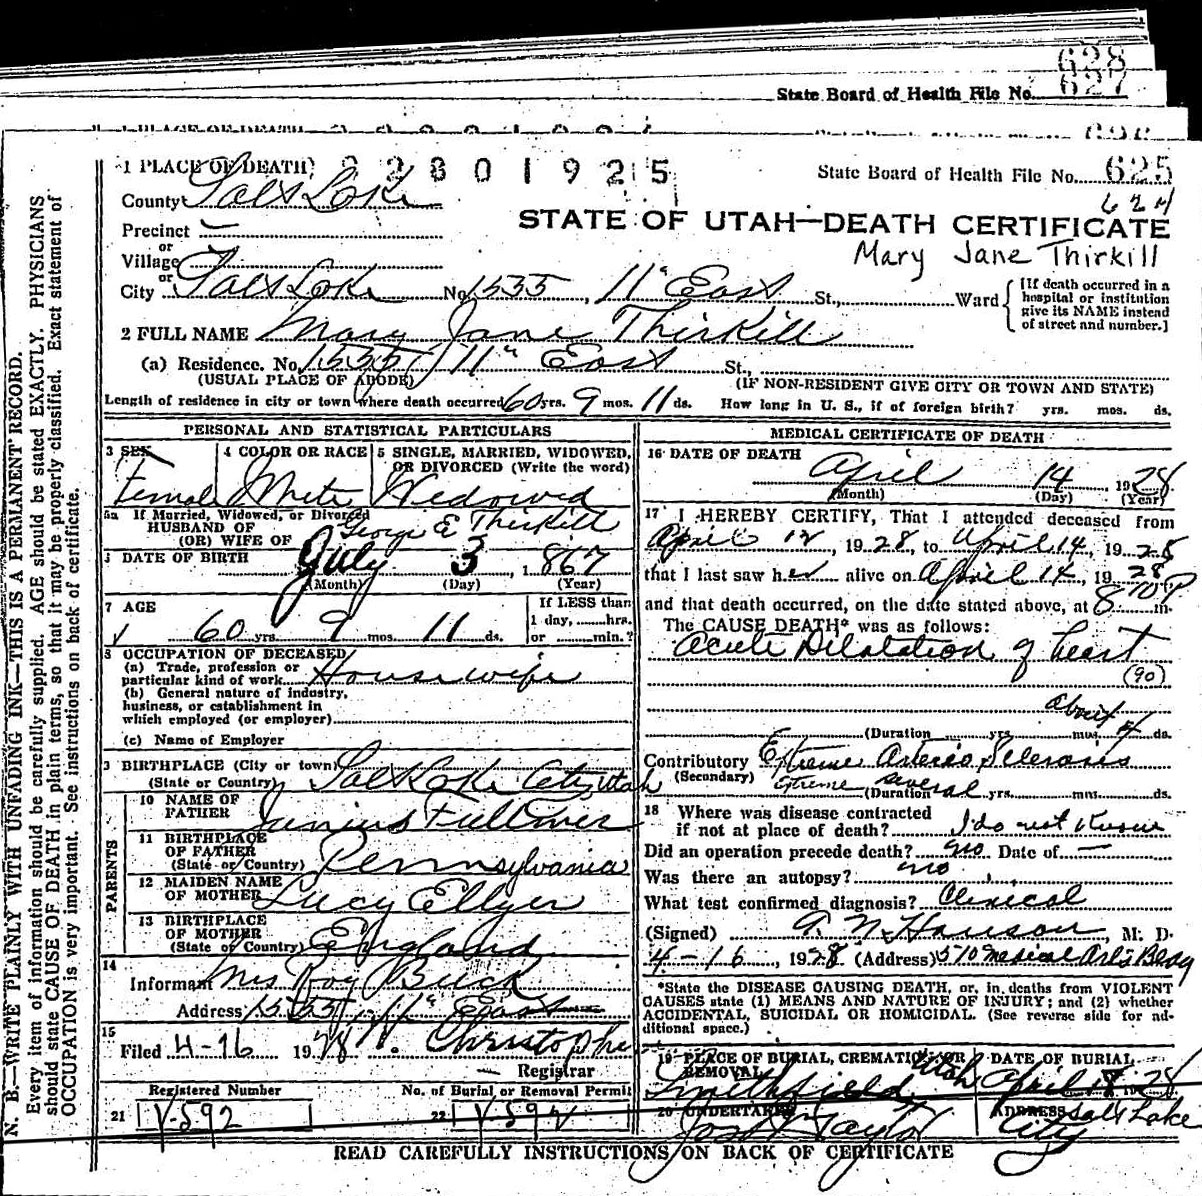 628
627
State Board of Health File No.
1 PLACE OF DEATH
2 2 8 0 1 9 2 5
State Board of Health File No. 625
624
County Salt Lake
STATE OF UTAH—DEATH CERTIFICATE
Precinct —
Mary Jane Thirkill
or
Village
or
City Salt Lake No. 1535, 11" East St., Ward
[If death occurred in a hospital or institution give its NAME instead of street and number.]
2 FULL NAME Mary Jane Thirkill
(a) Residence. No. 1535 11" East St.,
(USUAL PLACE OF ABODE)
(IF NON-RESIDENT GIVE CITY OR TOWN AND STATE)
Length of residence in city or town where death occurred 60 yrs. 9 mos. 11 ds. How long in U. S., if of foreign birth? yrs. mos. ds.
PERSONAL AND STATISTICAL PARTICULARS
3 SEX
Female
4 COLOR OR RACE
White
5 SINGLE, MARRIED, WIDOWED, OR DIVORCED (Write the word)
Widowed
5a If Married, Widowed, or Divorced
HUSBAND OF
(OR) WIFE OF George E Thirkill
DATE OF BIRTH July 3, 1867
(Month) (Day) (Year)
7 AGE
60 yrs. 9 mos. 11 ds.
If LESS than
1 day, hrs.
or min.?
8 OCCUPATION OF DECEASED
(a) Trade, profession or
particular kind of work Housewife
(b) General nature of industry,
business, or establishment in
which employed (or employer)
(c) Name of Employer
9 BIRTHPLACE (City or town)
(State or Country) Salt Lake City Utah
PARENTS
10 NAME OF
FATHER Junius Fullmer
11 BIRTHPLACE
OF FATHER
(State or Country) Pennsylvania
12 MAIDEN NAME
OF MOTHER Lucy Ellyer
13 BIRTHPLACE
OF MOTHER
(State or Country) England
14
Informant Mrs Roy Buck
Address 1535 11" East
15
Filed 4-16 1928 Christophe
Registrar
Registered Number
No. of Burial or Removal Permit
21 V-592
22 V-592
MEDICAL CERTIFICATE OF DEATH
16 DATE OF DEATH
April 14 1928
(Month) (Day) (Year)
17 I HEREBY CERTIFY, That I attended deceased from
April 12, 1928, to April 14, 1928
that I last saw her alive on April 14, 1928
and that death occurred, on the date stated above, at 8 10 P m.
The CAUSE DEATH* was as follows:
Acute Dilatation of heart
(90)
about
(Duration yrs. mos. 4 ds.
Contributory Extreme Arterio Sclerosis
(Secondary) Extreme (Duration several yrs. mos. ds.
18 Where was disease contracted
if not at place of death? I do not know
Did an operation precede death? no Date of —
Was there an autopsy? no
What test confirmed diagnosis? Clinical
(Signed) Hanson, M. D.
4-16, 1928 (Address) 510 Medical Arts Bldg
*State the DISEASE CAUSING DEATH, or, in deaths from VIOLENT
CAUSES state (1) MEANS AND NATURE OF INJURY; and (2) whether
ACCIDENTAL, SUICIDAL OR HOMICIDAL. (See reverse side for ad-
ditional space.)
19 PLACE OF BURIAL, CREMATION OR
REMOVAL
Smithfield Utah
DATE OF BURIAL
April 18 1928
20 UNDERTAKER
Taylor
ADDRESS Salt Lake
City
READ CAREFULLY INSTRUCTIONS ON BACK OF CERTIFICATE
N. B.—WRITE PLAINLY WITH UNFADING INK—THIS IS A PERMANENT RECORD.
Every item of information should be carefully supplied. AGE should be stated EXACTLY. PHYSICIANS
should state CAUSE OF DEATH in plain terms, so that it may be properly classified. Exact statement of
OCCUPATION is very important. See instructions on back of certificate.